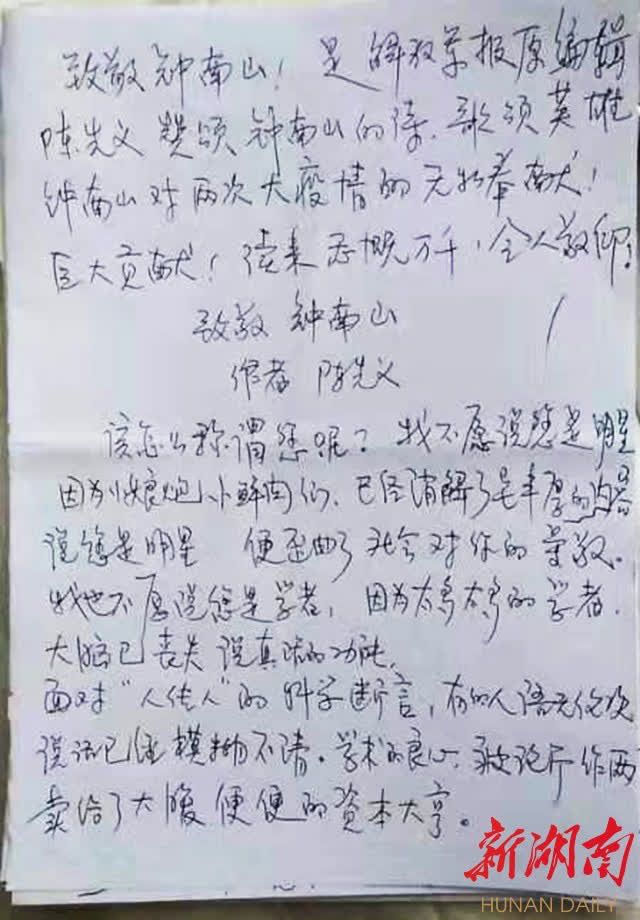 致敬钟南山！是解放军报原编辑
陈先义赞颂钟南山的诗.歌颂英雄
钟南山对两次大疫情的无私奉献！
巨大贡献！读来感慨万千，令人敬仰！
致敬 钟南山
作者 陈先义
该怎么称谓您呢？我不愿说您是明星
因为娘炮小鲜肉们、已经消解了它丰厚的内容
说您是明星 便歪曲了社会对你的尊敬。
我也不愿说您是学者，因为太多太多的学者，
大脑已丧失说真话的功能，
面对"人传人"的科学断言，有的人语无伦次
说话已经模糊不清。学术的良心、被论斤作两
卖给了大腹便便的资本大亨。
新湖南
HUNAN DAILY